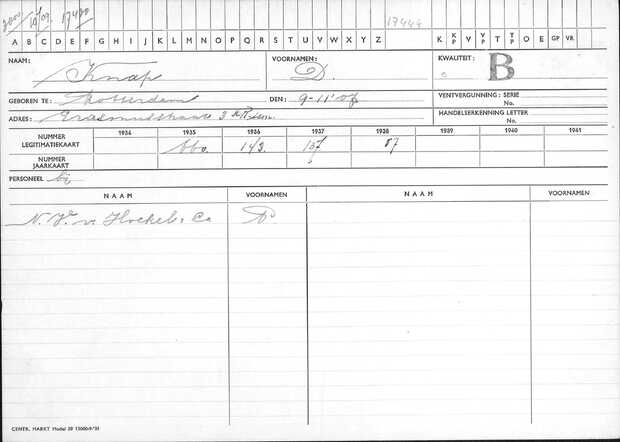 17444
A B C D E F G H I J K L M N O P Q R S T U V W X Y Z K KP V VP T TP O E GP VR
NAAM: Knap VOORNAMEN: D. KWALITEIT: B
GEBOREN TE: Rotterdam DEN: 9-11-07 VENTVERGUNNING: SERIE No.
ADRES: 3 HANDELSERKENNING LETTER No.
NUMMER LEGITIMATIEKAART 1934 1935 1936 1937 1938 1939 1940 1941
660. 143. 137 87
NUMMER JAARKAART
PERSONEEL bij
NAAM VOORNAMEN NAAM VOORNAMEN
N.V. v. & Co
CENTR. MARKT Model 20 15000-9-'35